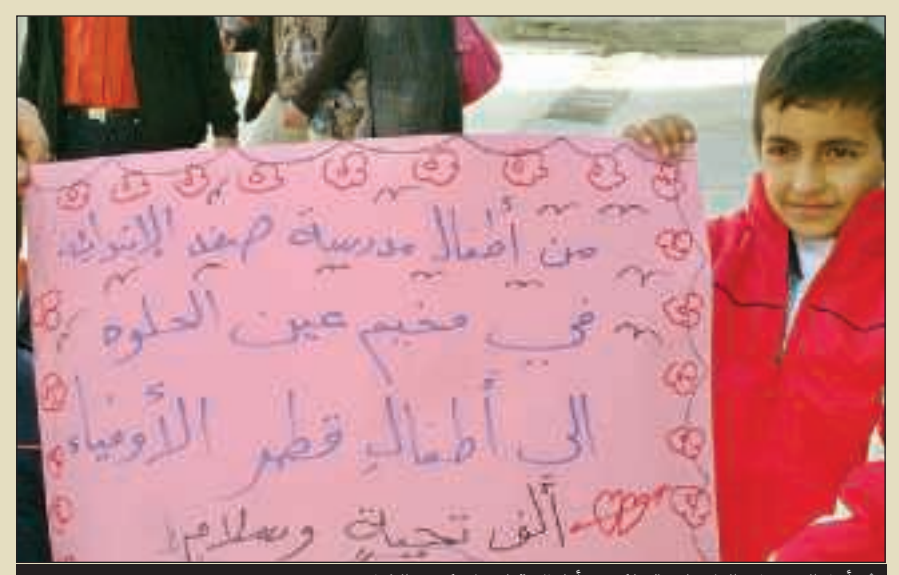 من أطفال مدرسة صفد الإبتدائية
في مخيم عين الحلوه
الى أطفال قطر الأوفياء
ألف تحية وسلام